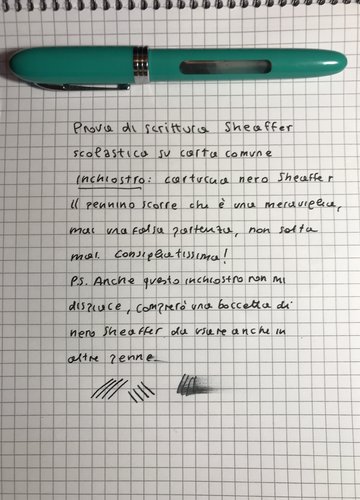 Prova di scrittura Sheaffer
scolastica su carta comune
Inchiostro: cartuccia nero Sheaffer
Il pennino scorre che è una meraviglia,
mai una falsa partenza, non salta
mai. Consigliatissima!
PS. Anche questo inchiostro non mi
dispiace, comprerò una boccetta di
nero Sheaffer da usare anche in
altre penne.